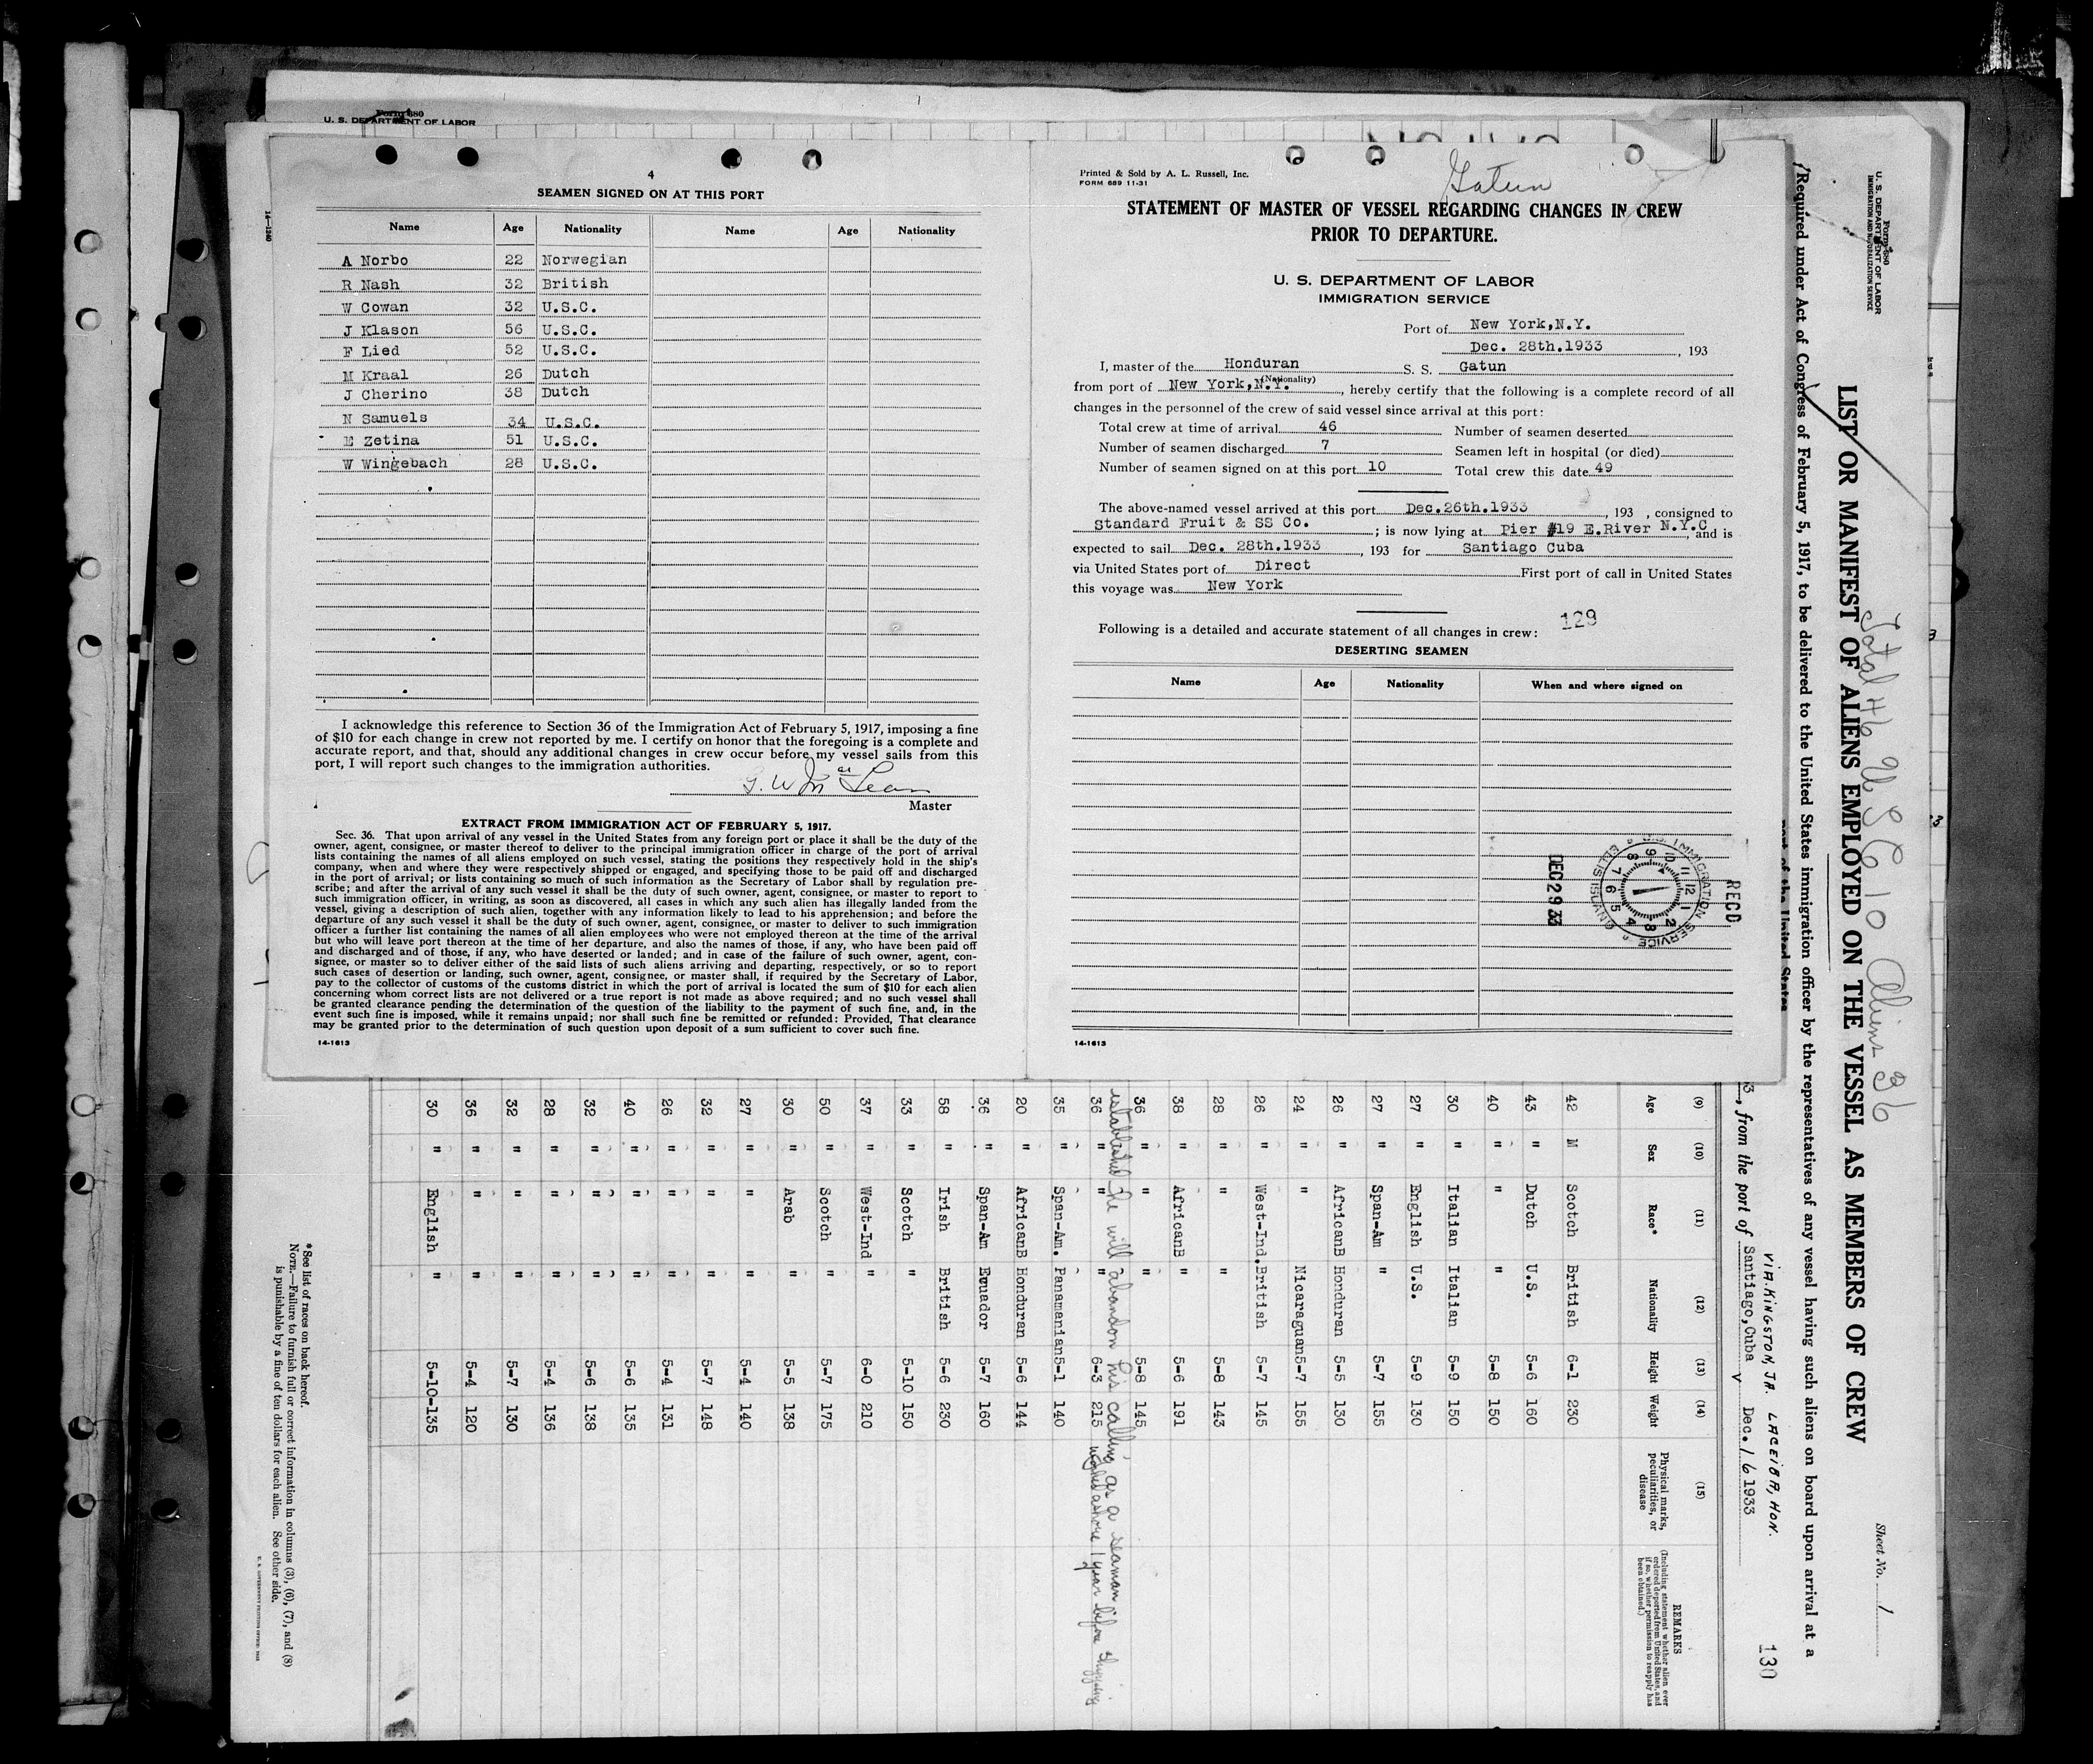 Form 680
U. S. DEPARTMENT OF LABOR
14—1240
4
SEAMEN SIGNED ON AT THIS PORT
Name Age Nationality Name Age Nationality
A Norbo 22 Norwegian
R Nash 32 British
W Cowan 32 U.S.C.
J Klason 56 U.S.C.
F Lied 52 U.S.C.
M Kraal 26 Dutch
J Cherino 38 Dutch
N Samuels 34 U.S.C.
E Zetina 51 U.S.C.
W Wingebach 28 U.S.C.
I acknowledge this reference to Section 36 of the Immigration Act of February 5, 1917, imposing a fine
of $10 for each change in crew not reported by me. I certify on honor that the foregoing is a complete and
accurate report, and that, should any additional changes in crew occur before my vessel sails from this
port, I will report such changes to the immigration authorities.
Master
EXTRACT FROM IMMIGRATION ACT OF FEBRUARY 5, 1917.
Sec. 36. That upon arrival of any vessel in the United States from any foreign port or place it shall be the duty of the
owner, agent, consignee, or master thereof to deliver to the principal immigration officer in charge of the port of arrival
lists containing the names of all aliens employed on such vessel, stating the positions they respectively hold in the ship's
company, when and where they were respectively shipped or engaged, and specifying those to be paid off and discharged
in the port of arrival; or lists containing so much of such information as the Secretary of Labor shall by regulation pre-
scribe; and after the arrival of any such vessel it shall be the duty of such owner, agent, consignee, or master to report to
such immigration officer, in writing, as soon as discovered, all cases in which any such alien has illegally landed from the
vessel, giving a description of such alien, together with any information likely to lead to his apprehension; and before the
departure of any such vessel it shall be the duty of such owner, agent, consignee, or master to deliver to such immigration
officer a further list containing the names of all alien employees who were not employed thereon at the time of the arrival
but who will leave port thereon at the time of her departure, and also the names of those, if any, who have been paid off
and discharged and of those, if any, who have deserted or landed; and in case of the failure of such owner, agent, con-
signee, or master so to deliver either of the said lists of such aliens arriving and departing, respectively, or so to report
such cases of desertion or landing, such owner, agent, consignee, or master shall, if required by the Secretary of Labor,
pay to the collector of customs of the customs district in which the port of arrival is located the sum of $10 for each alien
concerning whom correct lists are not delivered or a true report is not made as above required; and no such vessel shall
be granted clearance pending the determination of the question of the liability to the payment of such fine, and, in the
event such fine is imposed, while it remains unpaid; nor shall such fine be remitted or refunded: Provided, That clearance
may be granted prior to the determination of such question upon deposit of a sum sufficient to cover such fine.
14-1613
Printed & Sold by A. L. Russell, Inc.
FORM 689 11-31
Gatun
STATEMENT OF MASTER OF VESSEL REGARDING CHANGES IN CREW
PRIOR TO DEPARTURE.
U. S. DEPARTMENT OF LABOR
IMMIGRATION SERVICE
Port of New York,N.Y.
Dec. 28th.1933 , 193
I, master of the Honduran S. S. Gatun
(Nationality)
from port of New York,N.Y. , hereby certify that the following is a complete record of all
changes in the personnel of the crew of said vessel since arrival at this port:
Total crew at time of arrival 46 Number of seamen deserted
Number of seamen discharged 7 Seamen left in hospital (or died)
Number of seamen signed on at this port 10 Total crew this date 49
The above-named vessel arrived at this port Dec.26th.1933 , 193 , consigned to
Standard Fruit & SS Co. ; is now lying at Pier #19 E.River N.Y.C, and is
expected to sail Dec. 28th.1933 , 193 for Santiago Cuba
via United States port of Direct First port of call in United States
this voyage was New York
129
Following is a detailed and accurate statement of all changes in crew:
DESERTING SEAMEN
Name Age Nationality When and where signed on
REC'D
U.S. IMMIGRATION SERVICE ELLIS ISLAND
DEC 29 33
14-1613
Form 680
U. S. DEPARTMENT OF LABOR
IMMIGRATION AND NATURALIZATION SERVICE
Sheet No. 1
Total 46 USC 10 Aliens 36
LIST OR MANIFEST OF ALIENS EMPLOYED ON THE VESSEL AS MEMBERS OF CREW
Required under Act of Congress of February 5, 1917, to be delivered to the United States immigration officer by the representatives of any vessel having such aliens on board upon arrival at a
port of the United States
130
VIA. KINGSTON, JA. LACEIBA, HON.
3, from the port of Santiago, Cuba Dec. 16 1933
(9) (10) (11) (12) (13) (14) (15)
Age Sex Race* Nationality Height Weight Physical marks, peculiarities, or disease REMARKS
(Including statement whether alien ever ordered deported from United States, and if so, whether permission to reapply has been obtained.)
42 M Scotch British 6-1 230
43 " Dutch U.S. 5-6 160
40 " " " 5-8 150
30 " Italian Italian 5-9 150
27 " English U.S. 5-9 130
27 " Span-Am " 5-7 155
26 " AfricanB Honduran 5-5 130
24 " " Nicaraguan 5-7 155
26 " West-Ind. British 5-7 145
28 " " " 5-8 143
38 " AfricanB " 5-6 191
36 " " " 5-8 145
established he will abandon his calling as a seaman
36 " " " 6-3 215 worked ashore 1 year before shipping
35 " Span-Am. Panamanian 5-1 140
20 " AfricanB Honduran 5-6 144
36 " Span-Am Ecuador 5-7 160
58 " Irish British 5-6 230
33 " Scotch " 5-10 150
37 " West-Ind " 6-0 210
50 " Scotch " 5-7 175
30 " Arab " 5-5 138
27 " " " 5-4 140
32 " " " 5-7 148
26 " " " 5-4 131
40 " " " 5-6 135
32 " " " 5-6 138
28 " " " 5-4 136
32 " " " 5-7 130
36 " " " 5-4 120
30 " English " 5-10-135
*See list of races on back hereof.
NOTE.—Failure to furnish full or correct information in columns (3), (6), (7), and (8)
is punishable by a fine of ten dollars for each alien. See other side.
U. S. GOVERNMENT PRINTING OFFICE